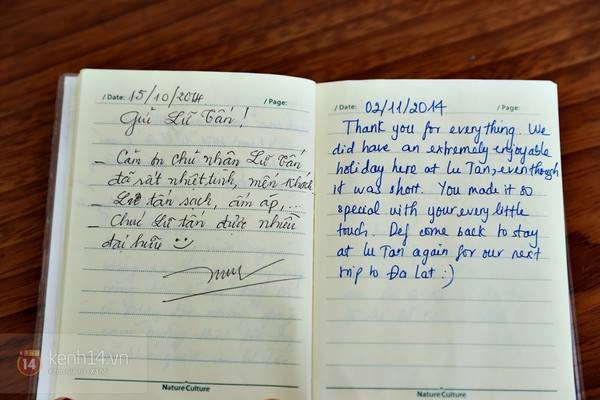 / Date: 15/10/2014 / Page:
Gửi Lữ Tấn!
_ Cảm ơn chủ nhân Lữ Tấn
đã rất nhiệt tình, mến khách.
_ Lữ tấn sạch, ấm áp,...
_ Chúc Lữ tấn được nhiều
đại hữu
Nature Culture
/ Date: 02/11/2014 / Page:
Thank you for everything. We
did have an extremely enjoyable
holiday here at Lu Tan, even though
it was short. You made it so
special with your every little
touch. Def come back to stay
at Lu Tan again for our next
trip to Đa Lat :)
Nature Culture
14 kenh14.vn